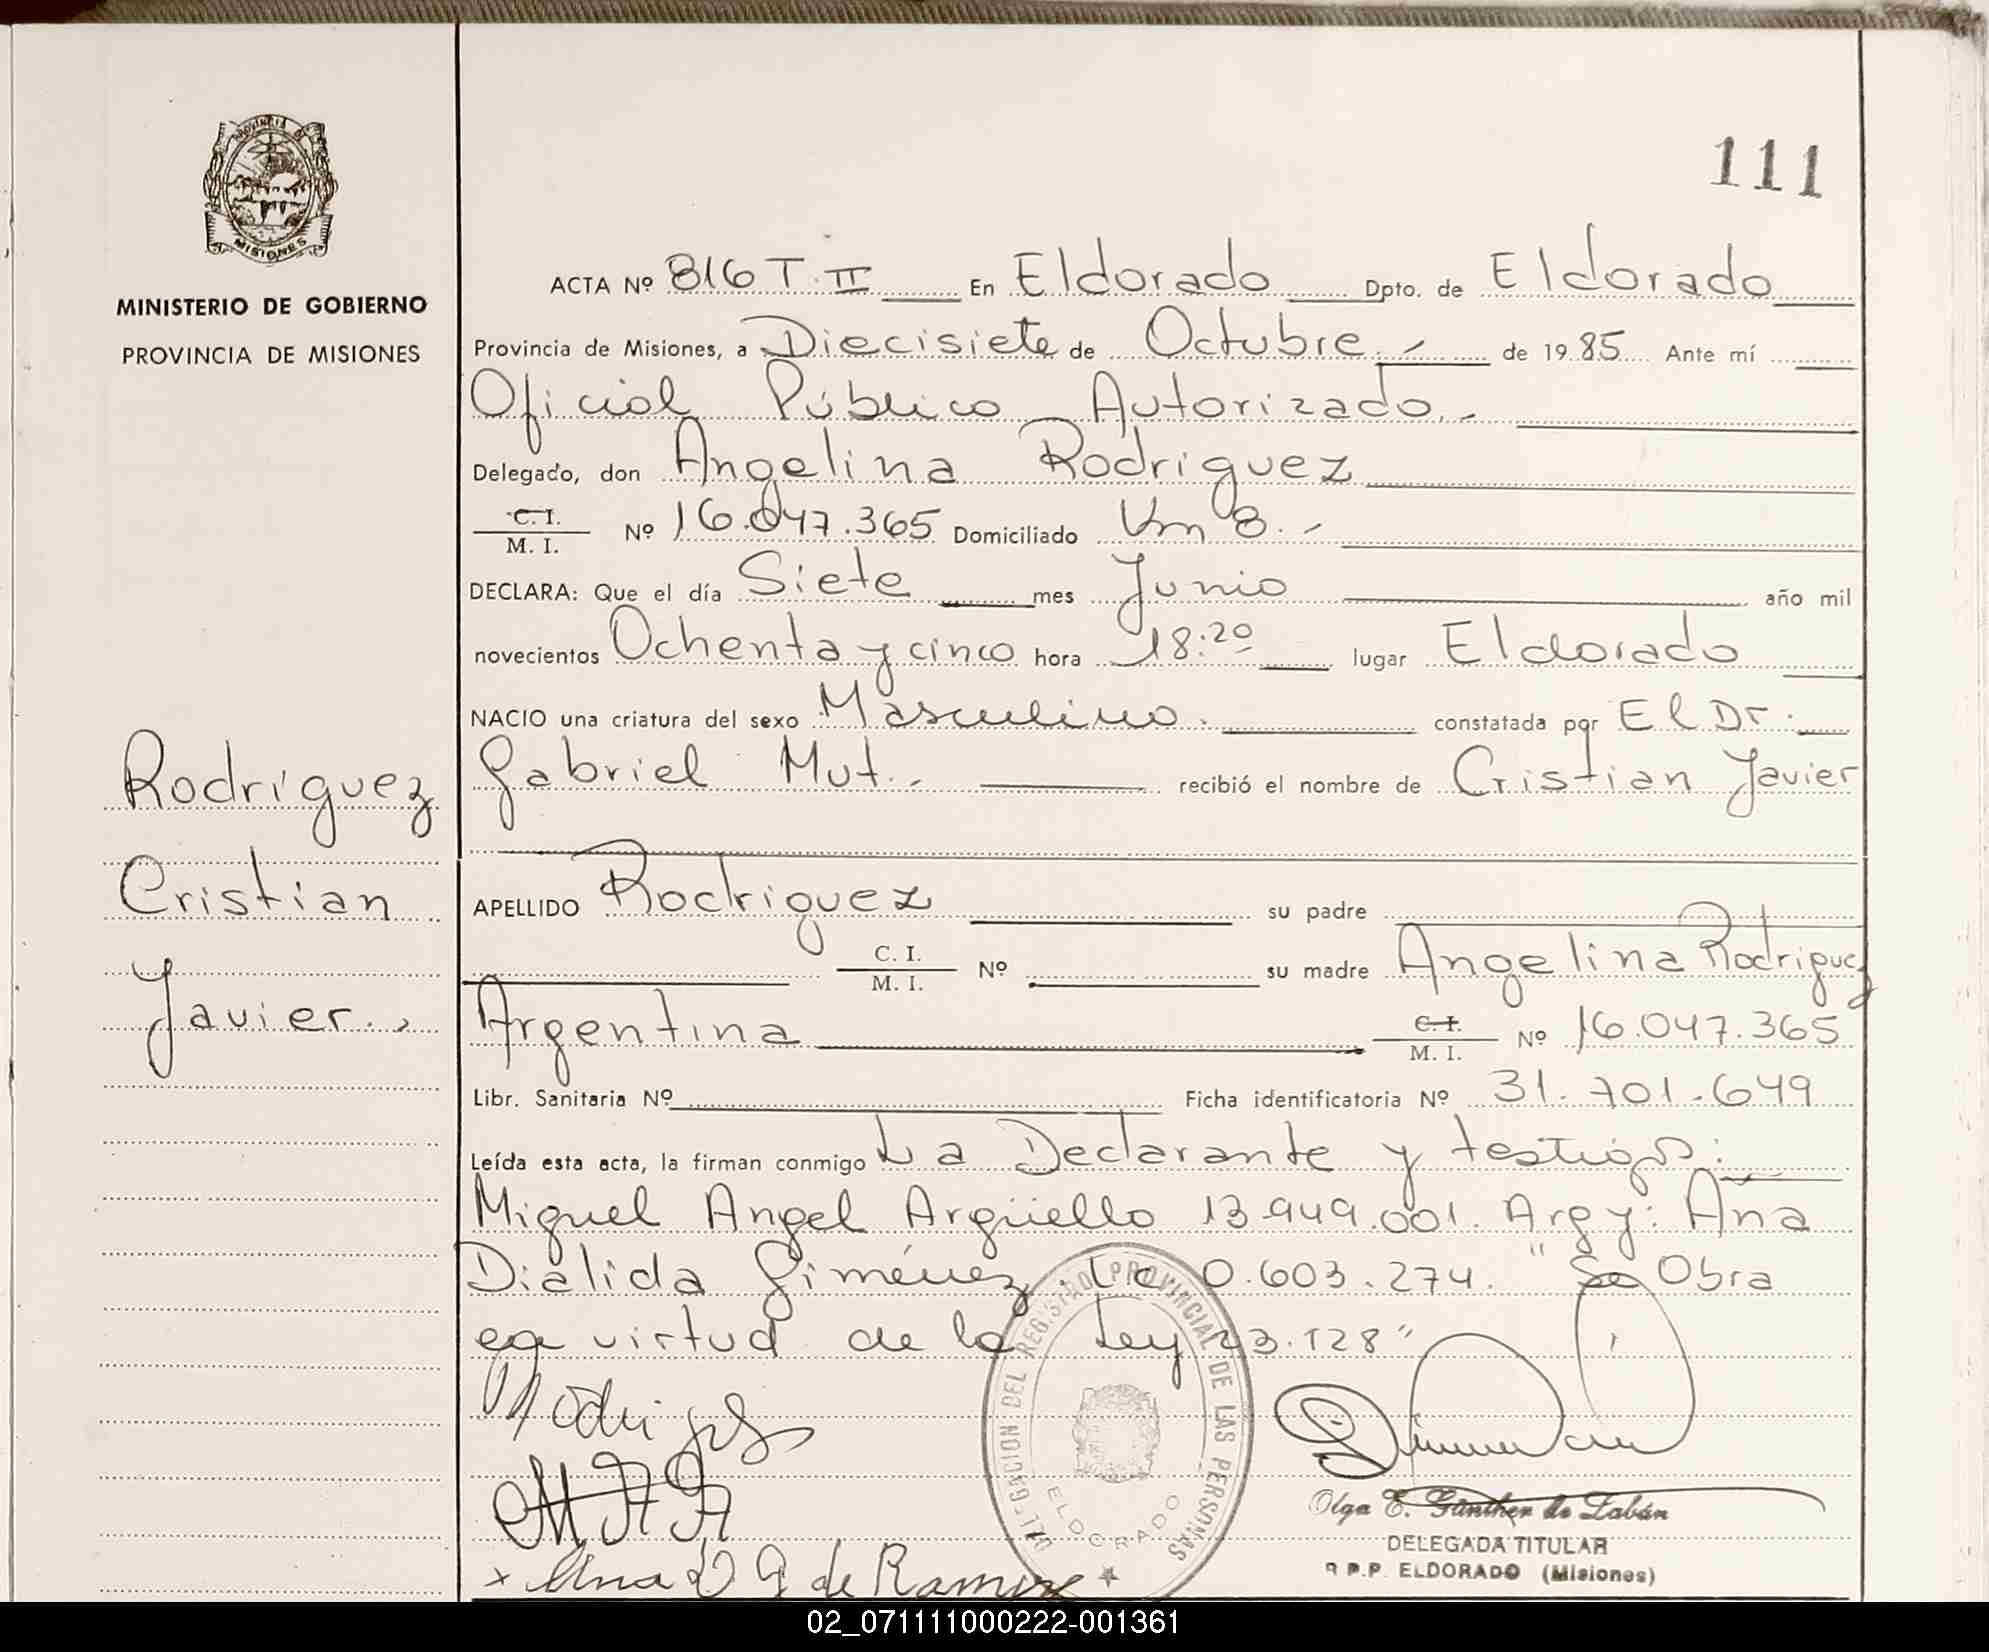 PROVINCIA DE
MISIONES
MINISTERIO DE GOBIERNO
PROVINCIA DE MISIONES
111
ACTA Nº 816 T. II En Eldorado Dpto. de Eldorado
Provincia de Misiones, a Diecisiete de Octubre.- de 1985 Ante mí
Oficial Público Autorizado.-
Delegado, don Angelina Rodriguez
C. I.
M. I. Nº 16.047.365 Domiciliado Km 8.-
DECLARA: Que el día Siete mes Junio año mil
novecientos Ochenta y cinco hora 18:20 lugar Eldorado
NACIO una criatura del sexo Masculino. constatada por El Dr.
Gabriel Mut.- recibió el nombre de Cristian Javier
Rodriguez
Cristian
Javier.,
APELLIDO Rodriguez su padre
C. I.
M. I. Nº su madre Angelina Rodriguez
Argentina C. I.
M. I. Nº 16.047.365
Libr. Sanitaria Nº Ficha identificatoria Nº 31.701.649
Leída esta acta, la firman conmigo La Declarante y testigos:
Miguel Angel Argüello 13.949.001. Arg y: Ana
Dialida Giménez. Lc 0.603.274. "Se Obra
en virtud de la Ley 23.128"
DELEGACION DEL REGISTRO PROVINCIAL DE LAS PERSONAS
ELDORADO
Ana D G de Ramirez
Olga E. Günther de Zabán
DELEGADA TITULAR
R.P.P. ELDORADO (Misiones)
02_071111000222-001361